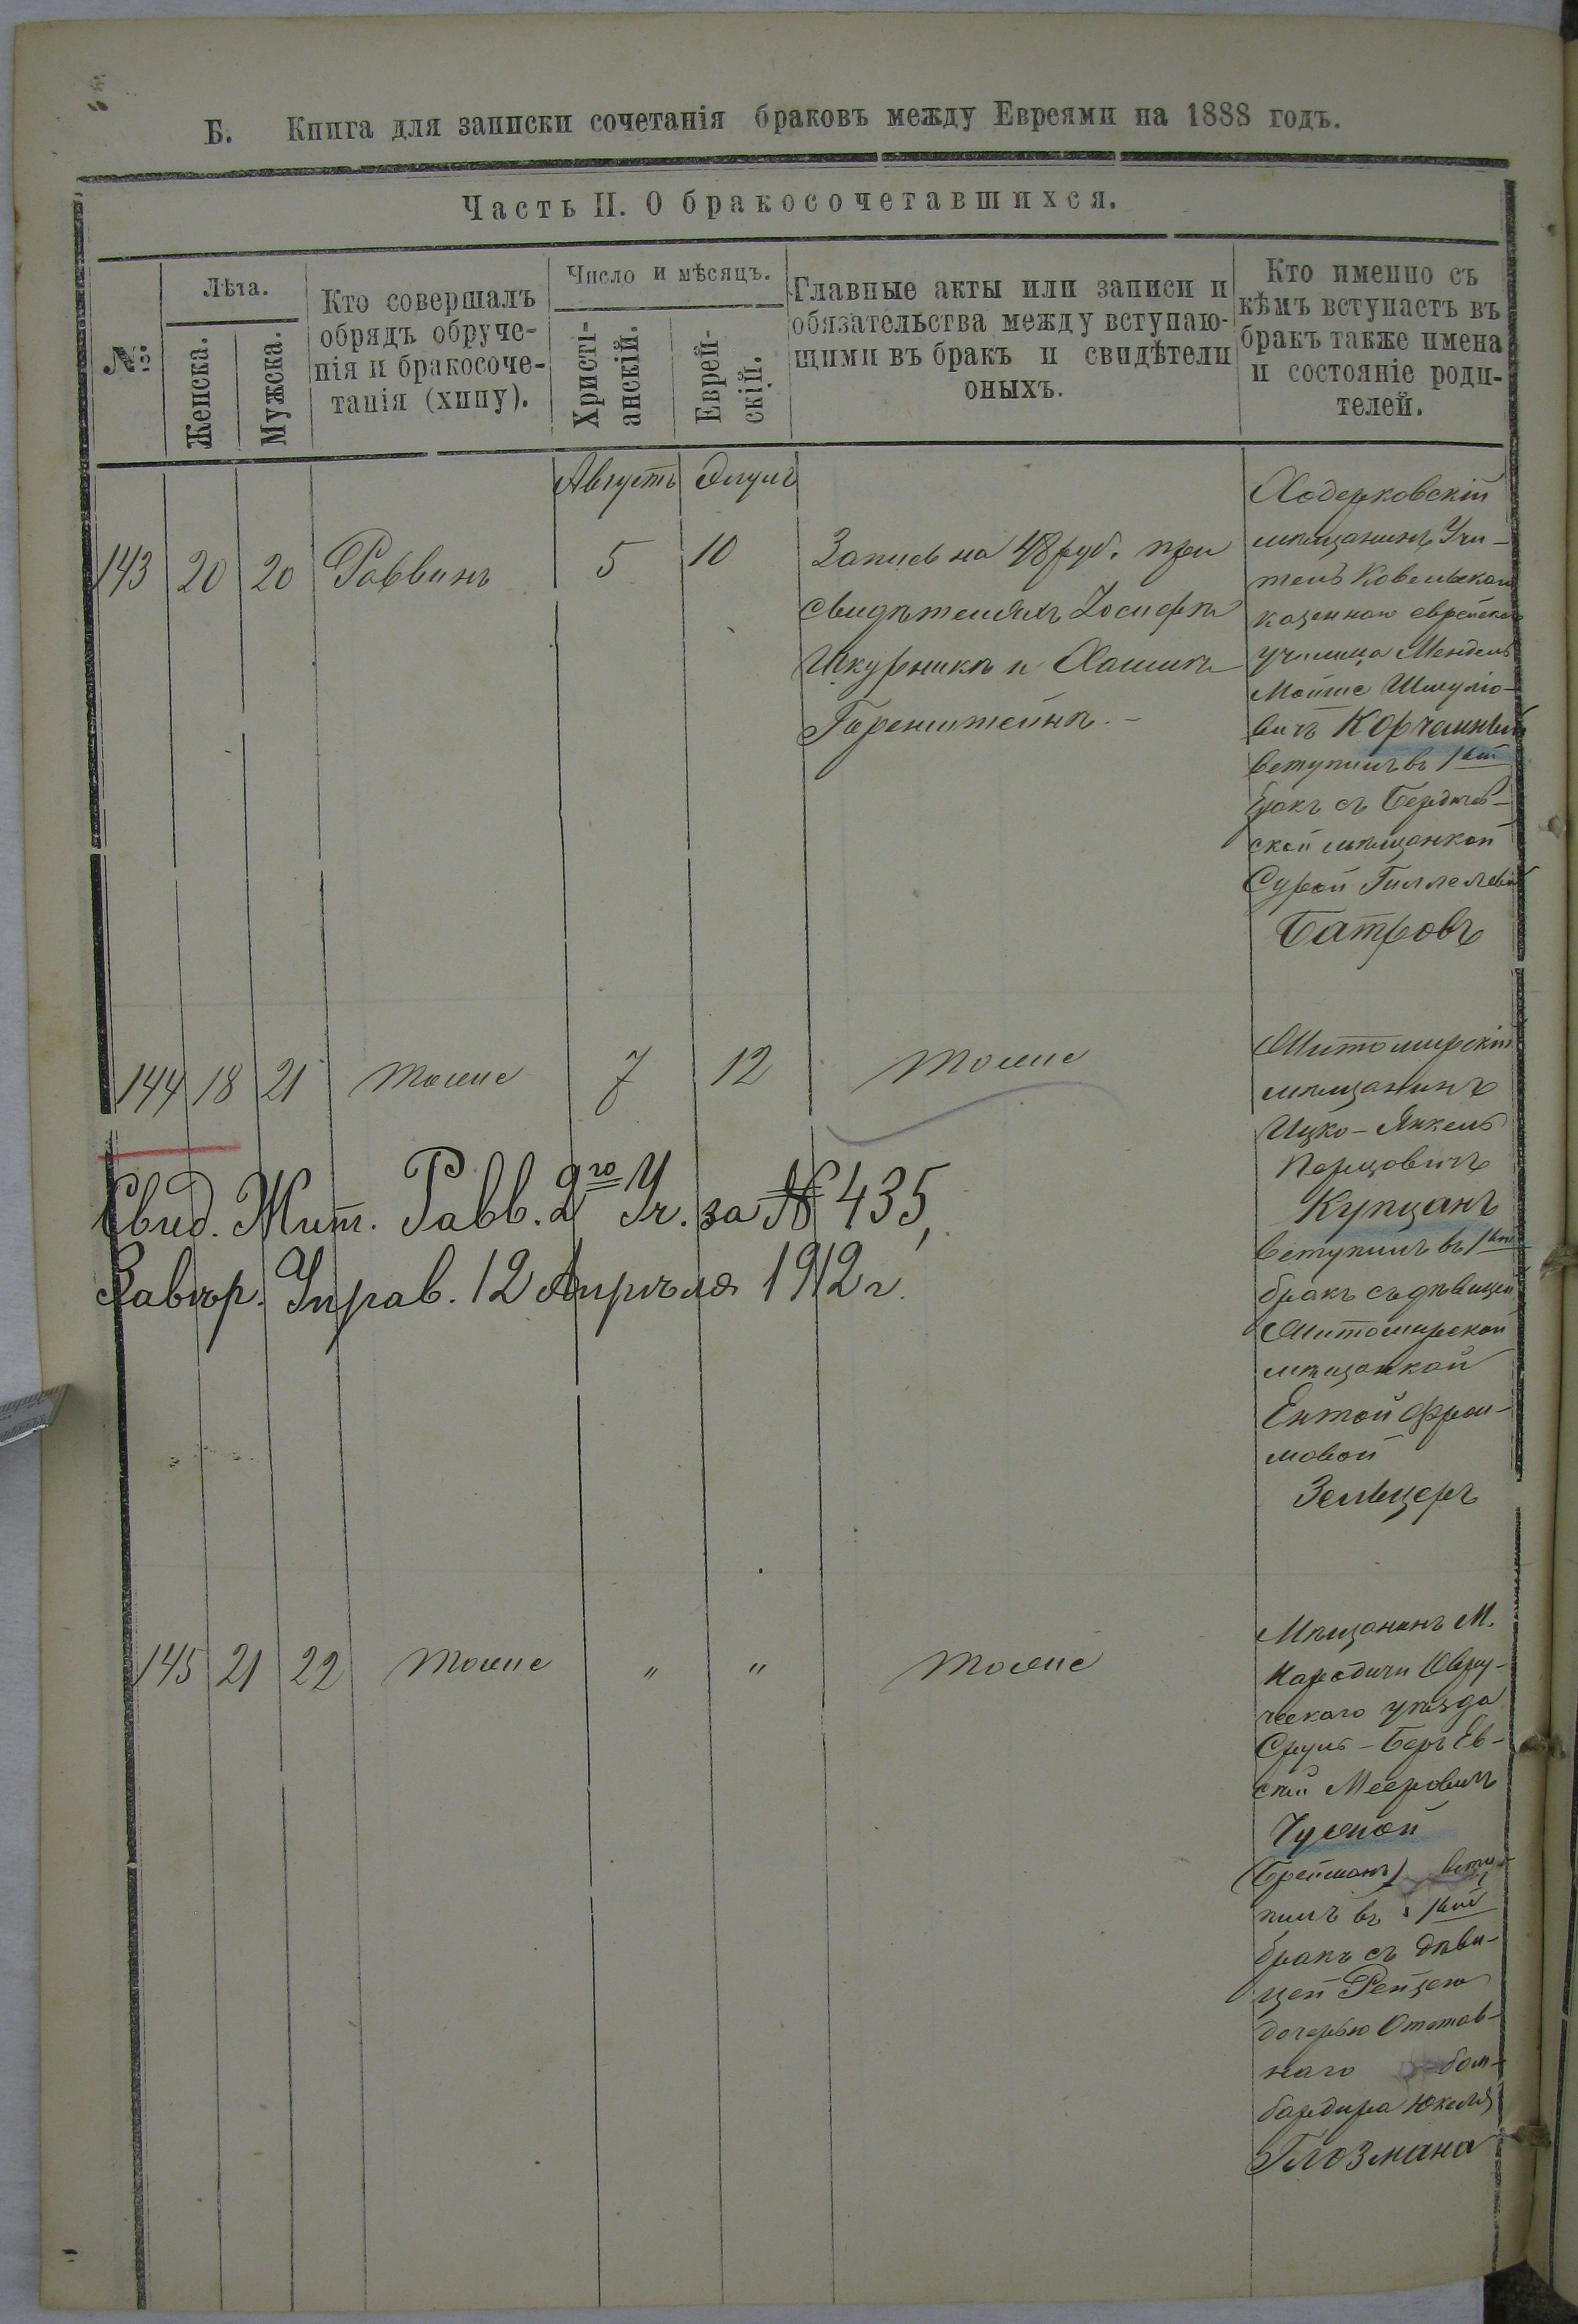 Б. Книга для записки сочетанія браковъ между Евреями на 1888 годъ.
Часть II. О бракосочетавшихся.
№
Лѣта.
Женска.
Мужска.
Кто совершалъ
обрядъ обруче-
нія и бракосоче-
танія (хипу).
Число и мѣсяцъ.
Христі-
анскій.
Еврей-
скій.
Главные акты или записи и
обязательства между вступаю-
щими въ бракъ и свидѣтели
оныхъ.
Кто именно съ
кѣмъ вступаетъ въ
бракъ также имена
и состояніе роди-
телей.
Августъ Элулъ
143 20 20 Раввинъ 5 10
Запись на 48 руб. при
свидѣтеляхъ Іосифѣ
Шкурникѣ и Хаимѣ
Горенштейнѣ. -
Ходорковскій
мѣщанинъ Учи-
тель Ковельскаго
казеннаго еврейскаго
училища Мендель
Мойше Шмуліо-
вичъ Корчемный
вступилъ въ 1ый
бракъ съ Бердичев-
ской мѣщанкой
Сурой Гиллелевой
Батровъ
144 18 21 тоже 7 12 тоже
Житомирскій
мѣщанинъ
Ицко-Янкель
Перцовичъ
Купцанъ
вступилъ въ 1ый
бракъ съ дѣвицей
Житомирской
мѣщанкой
Ентой Фрои-
мовой
Зельцеръ
Свид. Жит. Равв. 2го Уч. за № 435,
Завѣр. Управ. 12 Апрѣля 1912 г.
145 21 22 тоже " " тоже
Мѣщанинъ М.
Народичи Овру-
ческаго уѣзда
Сруль-Беръ Ев-
Мееровичъ
Чужой
(Брейманъ) всту-
пилъ въ 1ый
бракъ съ дѣви-
цей Рейзею
дочерью Отстав-
наго бом-
бардира Юкеля
Глозмана